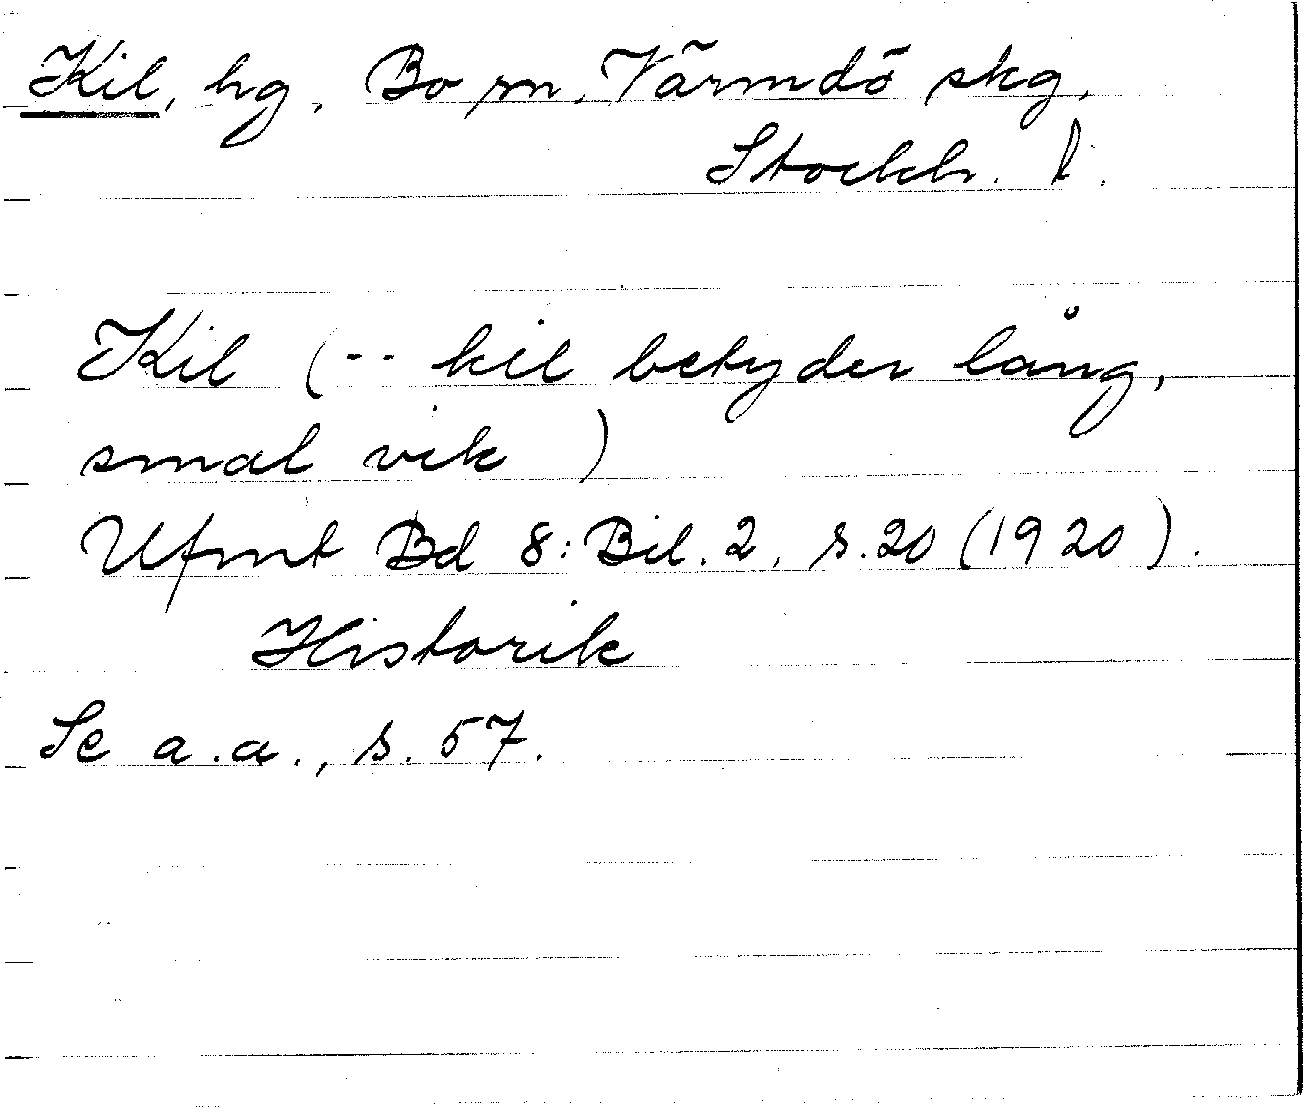 Kil, hg, Bo sn, Värmdö skg,
Stockh. l.
Kil (-- kil betyder lång,
smal vik)
Ufmt Bd 8: Bil. 2, s. 20 (1920).
Historik
Se a.a., s. 57.